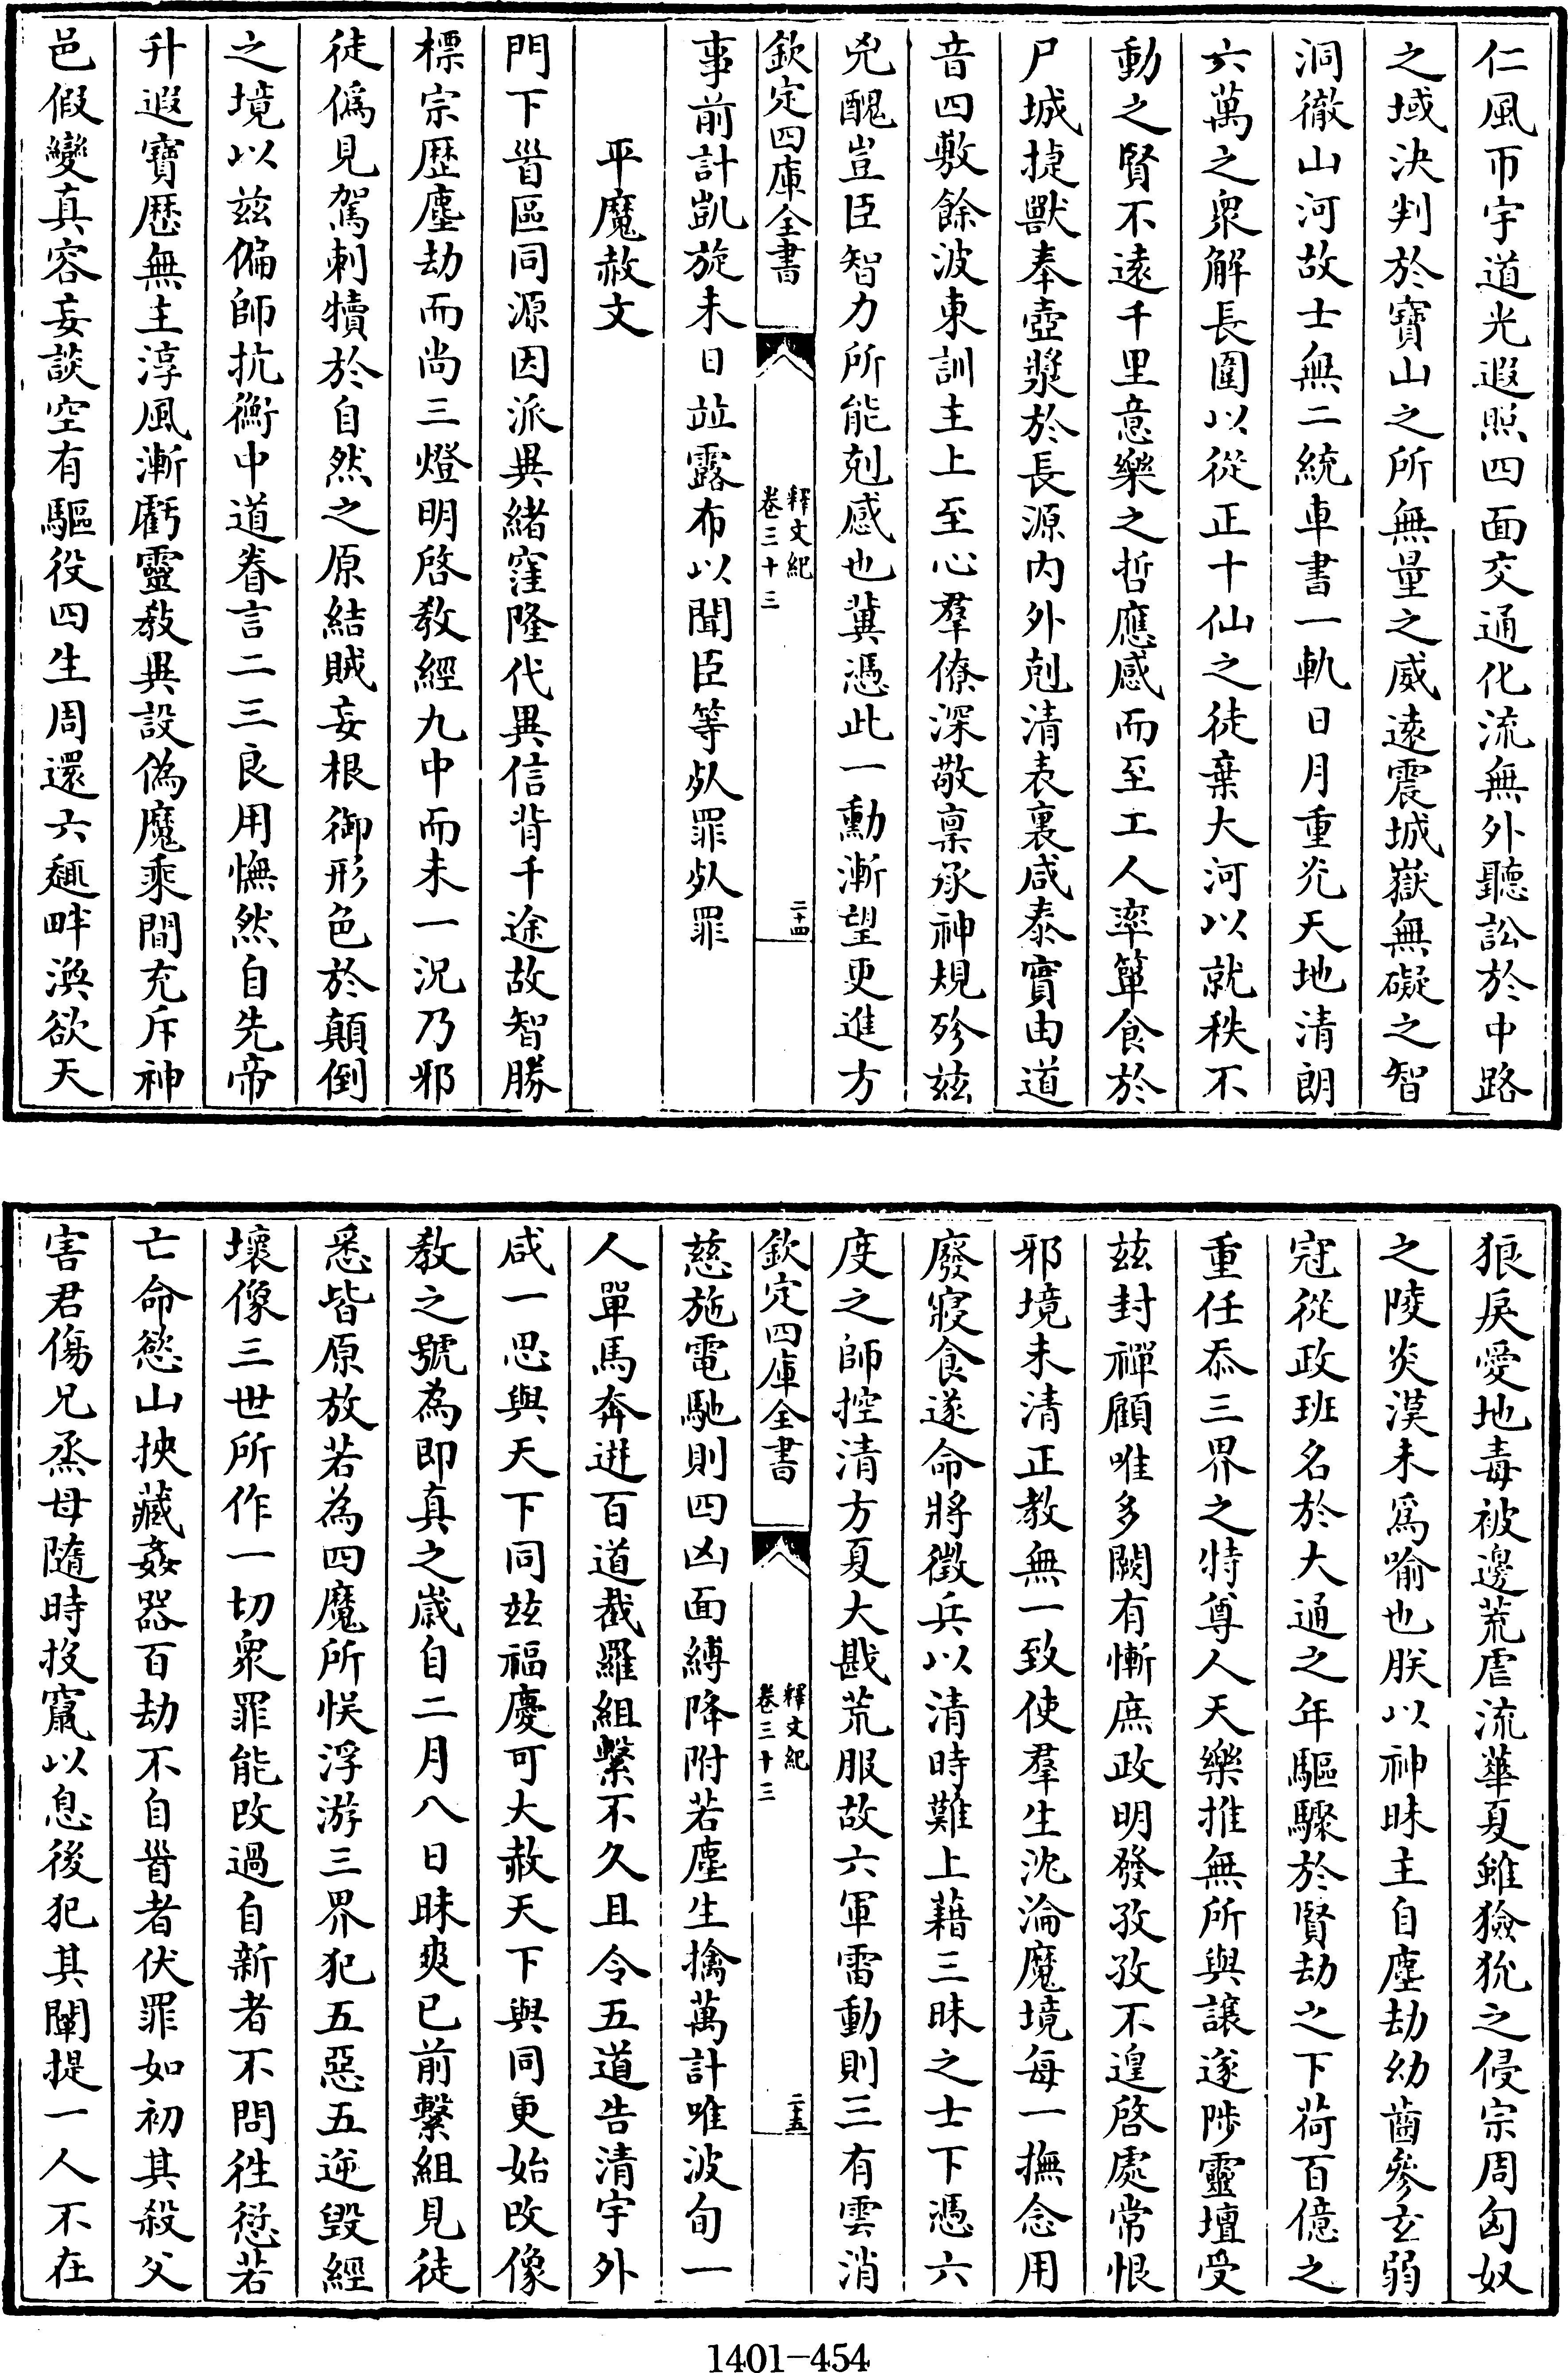 仁風帀宇道光遐照四面交通化流無外聽訟於中路
之域決判於寶山之所無量之威遠震城嶽無礙之智
洞徹山河故士無二統車書一軌日月重光天地清朗
六萬之衆解長圍以從正十仙之徒棄大河以就秩不
動之賢不遠千里意樂之哲應感而至工人率簞食於
尸城捷獸奉壺漿於長源内外剋清表裏咸泰實由道
音四敷餘波東訓主上至心羣僚深敬稟承神規殄兹
兇醜豈臣智力所能剋感也冀憑此一勳漸望更進方
欽定四庫全書
釋文紀
卷三十三
二十四
事前計凱旋未日竝露布以聞臣等死罪死罪
平魔赦文
門下昝區同源因派異緒窪隆代異信背千途故智勝
標宗歴塵劫而尚三燈明啓教經九中而未一況乃邪
徒偽見駕刺犢於自然之原結賊妄根御形色於顛倒
之境以兹偏師抗衡中道眷言二三良用憮然自先帝
升遐寶歴無主淳風漸虧靈教異設偽魔乘間充斥神
邑假變真容妄談空有驅役四生周還六趣畔渙欲天
狼戾愛地毒被邊荒虐流華夏雖獫狁之侵宗周匈奴
之陵炎漢未爲喻也朕以神昧主自塵劫幼齒參玄弱
冠從政班名於大通之年驅驟於賢劫之下荷百億之
重任忝三界之特尊人天樂推無所與讓遂陟靈壇受
兹封禪顧唯多闕有慚庶政明發孜孜不遑啓處常恨
邪境未清正教無一致使羣生沈淪魔境每一撫念用
廢寢食遂命將徵兵以清時難上藉三昧之士下憑六
度之師控清方夏大戡荒服故六軍雷動則三有雲消
欽定四庫全書
釋文紀
卷三十三
二十五
慈施電馳則四凶面縛降附若塵生擒萬計唯波旬一
人單馬奔逬百道截羅組繫不久且令五道告清宇外
咸一思與天下同兹福慶可大赦天下與同更始改像
教之號為即真之歳自二月八日昧爽已前繫組見徒
悉皆原放若為四魔所悞浮游三界犯五惡五逆毁經
壞像三世所作一切衆罪能改過自新者不問徃愆若
亡命慾山挾藏姦器百劫不自昝者伏罪如初其殺父
害君傷兄烝母隨時投竄以息後犯其闡提一人不在
1401-454